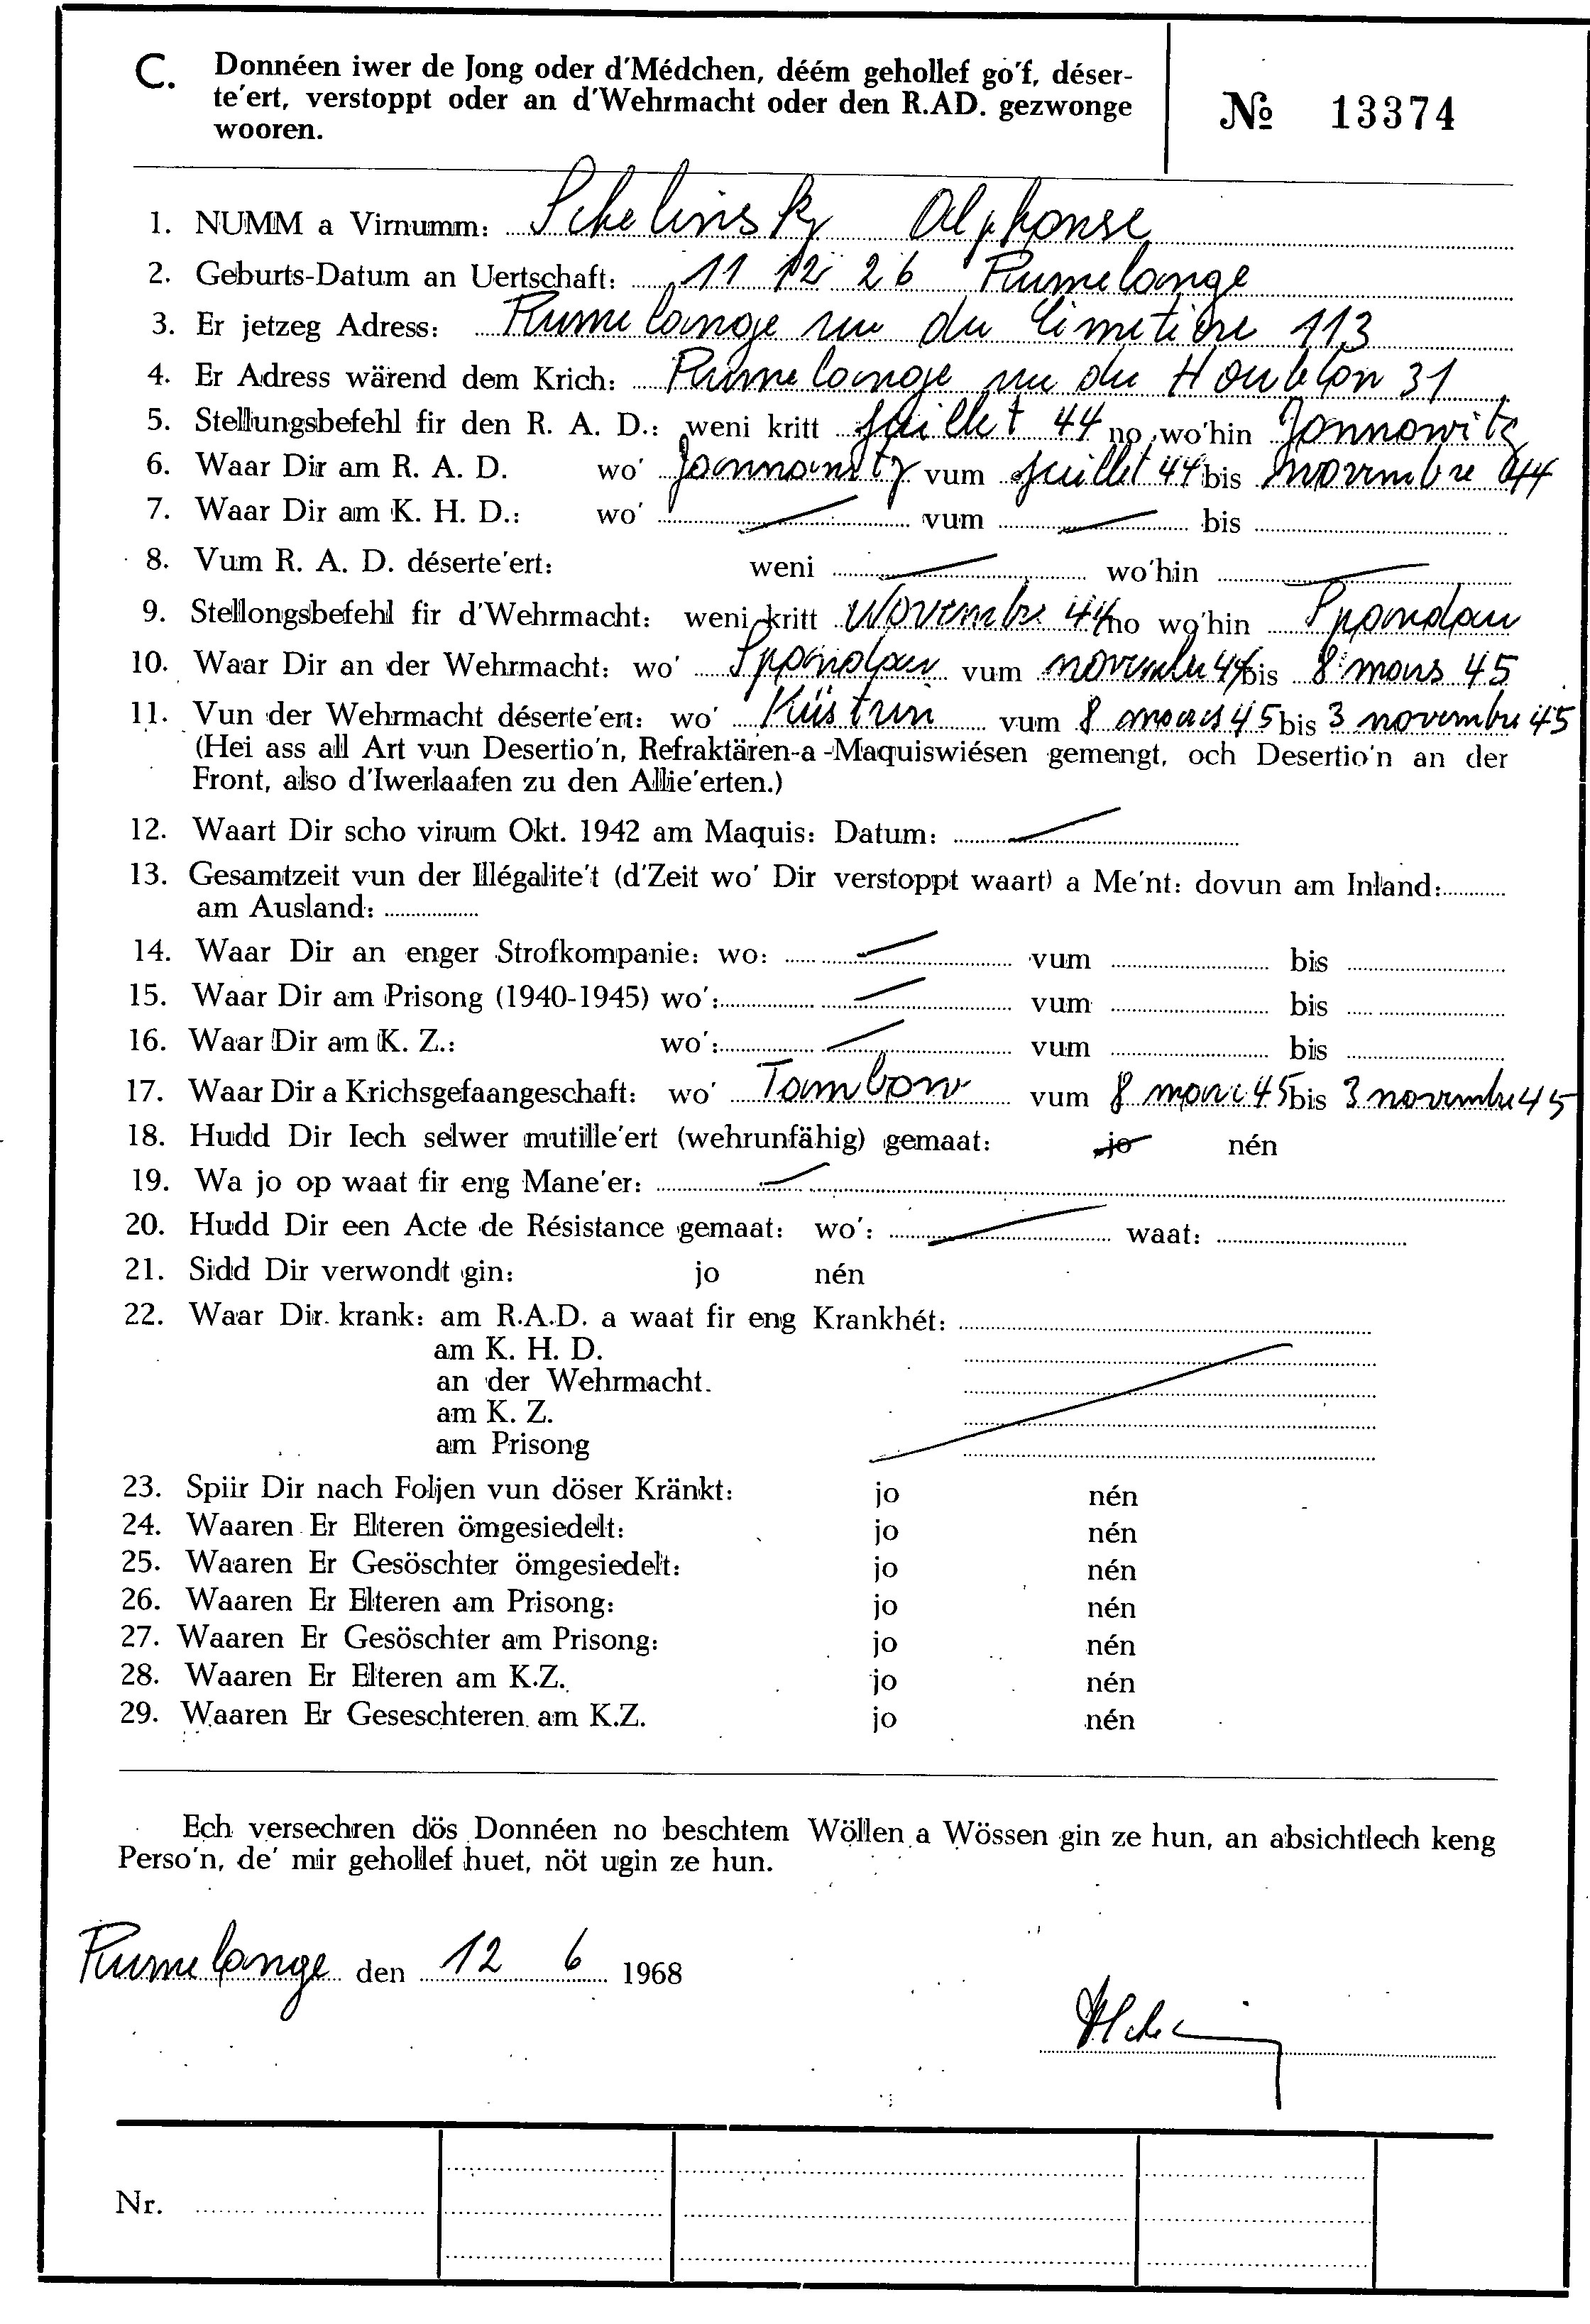 C. Donnéen iwer de Jong oder d'Médchen, déém gehollef go'f, déser-
te'ert, verstoppt oder an d'Wehrmacht oder den R.AD. gezwonge
wooren.
№ 13374
1. NUMM a Virnumm: Schelinsky Alphonse
2. Geburts-Datum an Uertschaft: 11 12 26 Rumelange
3. Er jetzeg Adress: Rumelange rue du Cimetière 113
4. Er Adress wärend dem Krich: Rumelange rue du Houblon 31
5. Stellungsbefehl fir den R. A. D.: weni kritt Juillet 44 no wo'hin Jannowitz
6. Waar Dir am R. A. D. wo' Jannowitz vum Juillet 44 bis novembre 44
7. Waar Dir am K. H. D.: wo' vum bis
8. Vum R. A. D. déserte'ert: weni wo'hin
9. Stellongsbefehl fir d'Wehrmacht: weni kritt Novembre 44 no wo'hin Spandau
10. Waar Dir an der Wehrmacht: wo' Spandau vum novembre 44 bis 8 mars 45
11. Vun der Wehrmacht déserte'ert: wo' Küstrin vum 8 mars 45 bis 3 novembre 45
(Hei ass all Art vun Desertio'n, Refraktären-a-Maquiswiésen gemengt, och Desertio'n an der
Front, also d'Iwerlaafen zu den Allie'erten.)
12. Waart Dir scho virum Okt. 1942 am Maquis: Datum:
13. Gesamtzeit vun der Illégalite't (d'Zeit wo' Dir verstoppt waart) a Me'nt: dovun am Inland:
am Ausland:
14. Waar Dir an enger Strofkompanie: wo: vum bis
15. Waar Dir am Prisong (1940-1945) wo': vum bis
16. Waar Dir am K. Z.: wo': vum bis
17. Waar Dir a Krichsgefaangeschaft: wo' Tambow vum 8 mars 45 bis 3 novembre 45
18. Hudd Dir Iech selwer mutille'ert (wehrunfähig) gemaat: jo nén
19. Wa jo op waat fir eng Mane'er:
20. Hudd Dir een Acte de Résistance gemaat: wo': waat:
21. Sidd Dir verwondt gin: jo nén
22. Waar Dir krank: am R.A.D. a waat fir eng Krankhét:
am K. H. D.
an der Wehrmacht.
am K. Z.
am Prisong
23. Spiir Dir nach Foljen vun döser Kränkt: jo nén
24. Waaren Er Elteren ömgesiedelt: jo nén
25. Waaren Er Gesöschter ömgesiedelt: jo nén
26. Waaren Er Elteren am Prisong: jo nén
27. Waaren Er Gesöschter am Prisong: jo nén
28. Waaren Er Elteren am K.Z. jo nén
29. Waaren Er Geseschteren am K.Z. jo nén
Ech versechren dös Donnéen no beschtem Wöllen a Wössen gin ze hun, an absichtlech keng
Perso'n, de' mir gehollef huet, nöt ugin ze hun.
Rumelange den 12 6 1968
Nr.